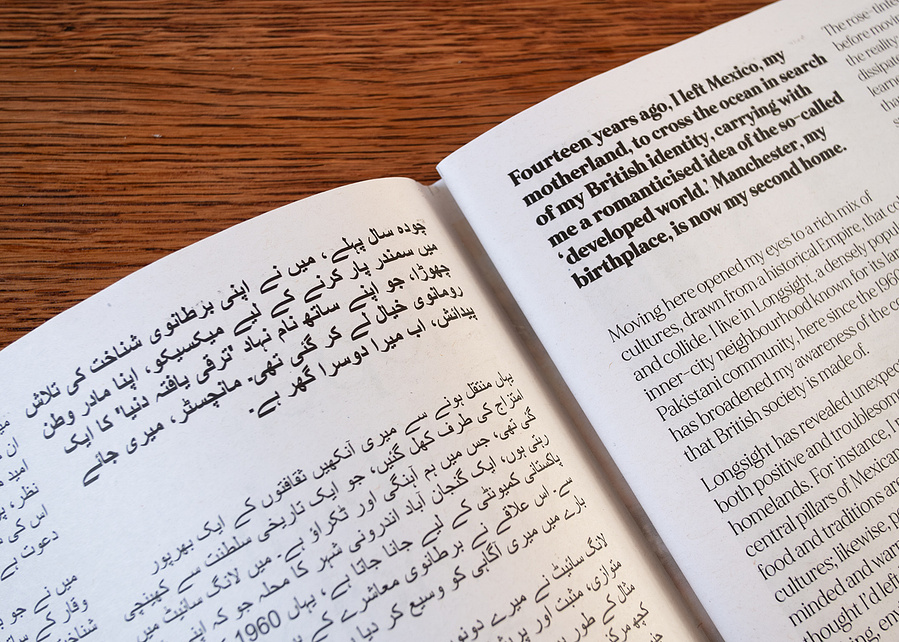 چودہ سال پہلے، میں نے اپنی برطانوی شناخت کی تلاش
میں سمندر پار کرنے کے لیے میکسیکو، اپنا مادر وطن
چھوڑا، جو اپنے ساتھ نام نہاد 'ترقی یافتہ دنیا' کا ایک
رومانوی خیال لے کر گئی تھی۔ مانچسٹر، میری جائے
پیدائش، اب میرا دوسرا گھر ہے۔
یہاں منتقل ہونے سے میری آنکھیں ثقافتوں کے ایک بھرپور
امتزاج کی طرف کھل گئیں، جو ایک تاریخی سلطنت سے کھینچی
گئی تھی، جس میں ہم آہنگی اور ٹکراؤ ہے۔ میں لانگ سائیٹ میں
رہتی ہوں، ایک گنجان آباد اندرونی شہر کا محلہ جو کہ اپنی
پاکستانی کمیونٹی کے لیے جانا جاتا ہے، یہاں 1960
سے۔ اس علاقے نے برطانوی معاشرے کے
بارے میں میری آگاہی کو وسیع کر دیا
لانگ سائیٹ نے میرے
متوازی، مثبت اور
مثال کے طور
کچھ
ان
امید
نظر،
اس کی
دعوت ہے
میں نے جو
وقار کے
Fourteen years ago, I left Mexico, my
motherland, to cross the ocean in search
of my British identity, carrying with
me a romanticised idea of the so-called
‘developed world.’ Manchester, my
birthplace, is now my second home.
Moving here opened my eyes to a rich mix of
cultures, drawn from a historical Empire, that
and collide. I live in Longsight, a densely
inner-city neighbourhood known for its
Pakistani community, here since the 1960
has broadened my awareness of the
that British society is made of.
Longsight has revealed
both positive and
homelands. For instance, I
central pillars of Mexican
food and traditions
cultures; likewise,
minded and
I'd
The rose-
before
the reality